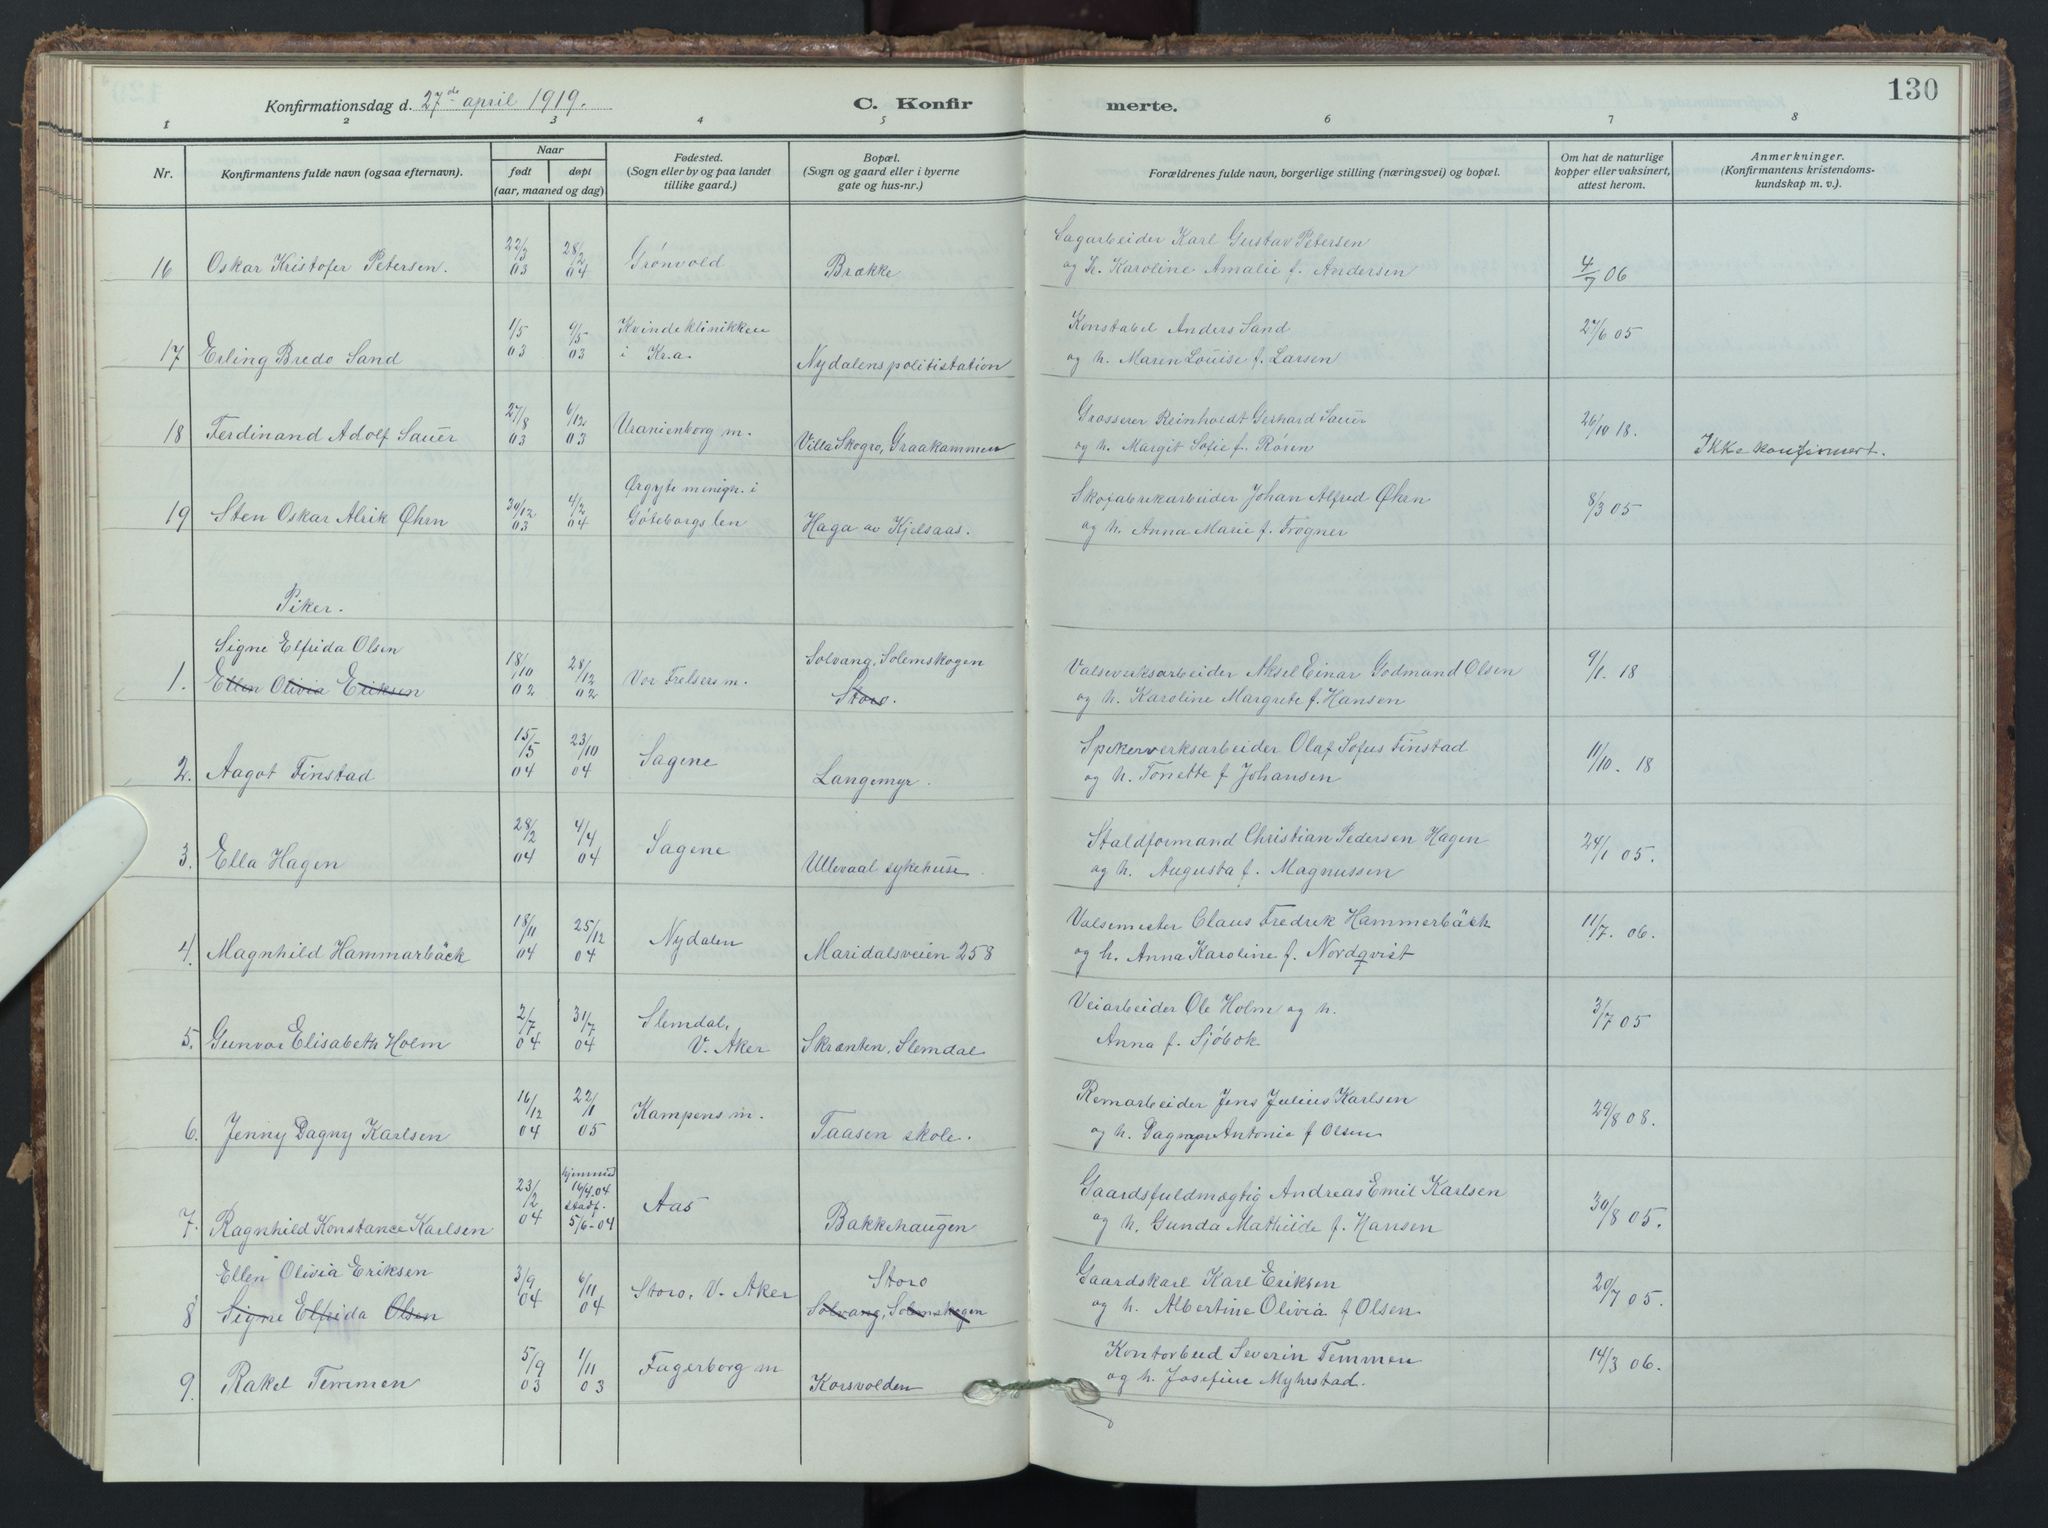 Konfirmationsdag d. 27de april 1919.
C. Konfir merte.
130
1 2 3 4 5 6 7 8
Nr.
Konfirmantens fulde navn (ogsaa efternavn).
Naar
født døpt
(aar, maaned og dag)
Fødested.
(Sogn eller by og paa landet
tillike gaard.)
Bopæl.
(Sogn og gaard eller i byerne
gate og hus-nr.)
Forældrenes fulde navn, borgerlige stilling (næringsvei) og bopæl.
Om hat de naturlige
kopper eller vaksinert,
attest herom.
Anmerkninger.
(Konfirmantens kristendoms-
kundskap m. v.).
16 Oskar Kristofer Petersen. 22/3 03 28/2 04 Grønvold Brække
Sagarbeider Karl Gustav Petersen
og h. Karoline Amalie f. Andersen
4/7 06
17 Erling Bredo Sand 1/5 03 9/5 03
Kvindeklinikken
i Kr.a.
Nydalens politistation
Konstabel Anders Sand
og h. Maren Louise f. Larsen
27/6 05
18 Ferdinand Adolf Sauer 27/8 03 6/12 03 Uranienborg m. Villa Skogro, Graakammen
Grosserer Reinholdt Gerhard Sauer
og h. Margit Sofie f. Røren
26/10 18.
Ikke konfirmert.
19 Sten Oskar Alrik Øhrn 30/12 03 4/2 04
Ørgyte menigh. i
Göteborgs len
Haga av Kjelsaas.
Skofabrikarbeider Johan Alfred Øhrn
og h. Anna Marie f. Frogner
8/3 05
Piker.
Signe Elfrida Olsen
1. Ellen Olivia Eriksen 18/10 02 28/12 02 Vor Frelsers m.
Solvang, Solemskogen
Storo.
Valseverksarbeider Aksel Einar Godmand Olsen
og h. Karoline Margrete f. Hansen
9/1. 18
2. Aagot Finstad 15/5 04 23/10 04 Sagene Langemyr.
Spikerverksarbeider Olaf Sofus Finstad
og h. Tonette f Johansen
11/10. 18
3. Ella Hagen 28/2 04 4/4 04 Sagene Ullevaal sykehuse.
Staldformand Christian Pedersen Hagen
og h. Augusta f. Magnussen
24/1 05.
4. Magnhild Hammarbäck 18/11 04 25/12 04 Nydalen Maridalsveien 258
Valsemester Claus Fredrik Hammerbäck
og h. Anna Karoline f. Nordqvist
11/7. 06.
5. Gunvor Elisabeth Holm 2/7 04 31/7 04
Slemdal,
V. Aker
Skrænten, Slemdal
Veiarbeider Ole Holm og h.
Anna f. Sjöbok
3/7 05
6. Jenny Dagny Karlsen 16/12 04 22/1 05 Kampens m. Taasen skole.
Remarbeider Jens Julius Karlsen
og h. Dagmar Antonie f Olsen
29/8 08.
7. Ragnhild Konstance Karlsen 23/2 04
hjemmed
16/4.04
stadf.
5/6-04
Aas Bakkehaugen
Gaardsfuldmægtig Andreas Emil Karlsen
og h. Gunda Mathilde f. Hansen
30/8 05.
Ellen Olivia Eriksen
8 Signe Elfrida Olsen 3/9 04 6/11 04 Storo, V. Aker
Storo
Solvang, Solemskogen
Gaardskarl Karl Eriksen
og h. Albertine Olivia f Olsen
20/7 05.
9. Rakel Temmen 5/9 03 1/11 03 Fagerborg m Korsvolden
Kontorbud Severin Temmen
og h. Josefine Myhrstad.
14/3 06.